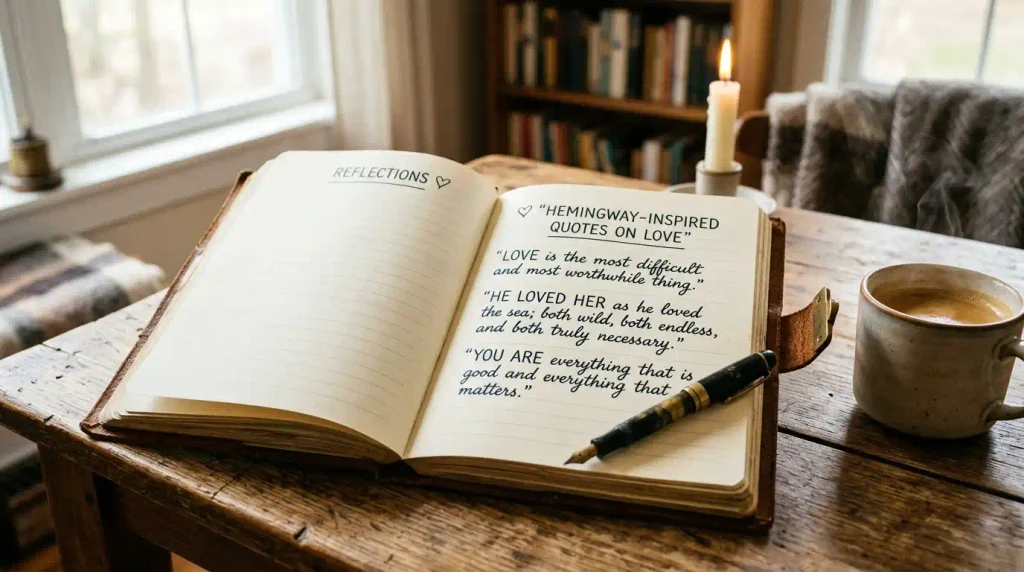 REFLECTIONS ♡
♡ "HEMINGWAY-INSPIRED
QUOTES ON LOVE"
"LOVE is the most difficult
and most worthwhile thing."
"HE LOVED HER as he loved
the sea; both wild, both endless,
and both truly necessary."
"YOU ARE everything that is
good and everything that
matters."